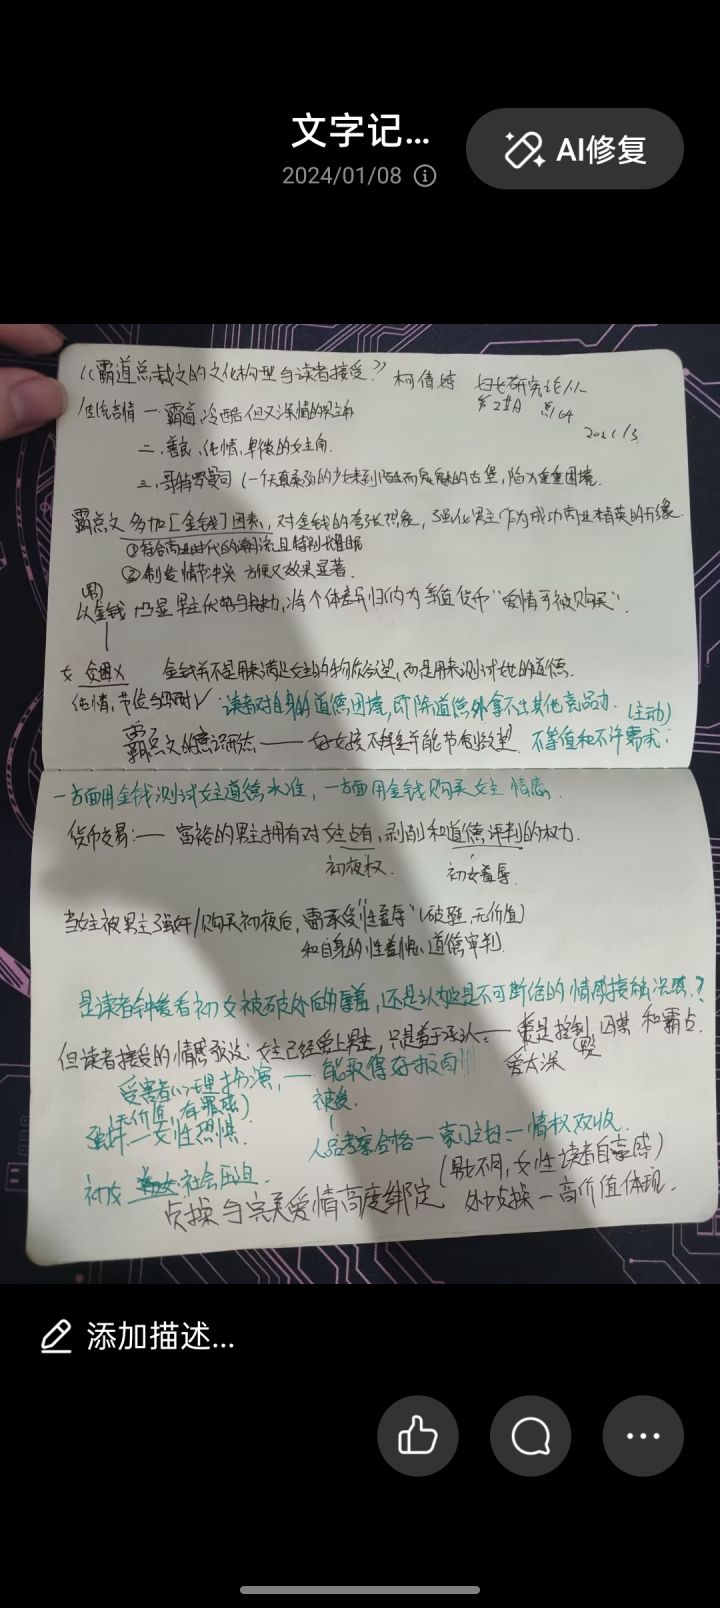 文字记...
AI修复
2024/01/08
《霸道总裁文的文化构型与读者接受》 柯倩婷 妇女研究论丛
传统言情 一. 霸道,冷酷但又深情的男主角
2021/3
二. 善良、纯情,卑微的女主角.
三. 哥特罗曼司(一个天真柔弱的少女来到陌生而鬼魅的古堡,陷入重重困境.
霸总文 多加[金钱]因素,对金钱的夸张想象,强化男主作为成功商业精英的形象
①符合商业时代的潮流且特别
②制造情节冲突 方便又效果显著.
以金钱 凸显男主优势与魅力,将个体差异归纳为等值货币"爱情可被购买".
女 贫困X 金钱并不是用来满足女主的物质欲望,而是用来测试她的道德.
纯情,节俭 √ 读者对自身的道德困境,即除道德外拿不出其他竞品力. (主动)
霸总文的意识形态——好女孩不拜金并能节制欲望. 不等值和不许需求:
一方面用金钱测试女主道德水准,一方面用金钱购买女主情感.
货币交易:—— 富裕的男主拥有对女主占有,剥削和道德评判的权力.
初夜权. 初女羞辱.
当女主被男主强奸/购买初夜后,需承受"性羞辱"(破鞋,无价值)
和自身的性羞愧、道德审判.
是读者钟爱看初女被破处后的羞,还是认为是不可断绝的情感接触
但读者接受的情感叙说:女主已经爱上男主,只是羞于承认 控制,囚禁和霸占.
爱太深
受害者心理扮演,—— 能取得好报面!!!
(无价值,有罪感)
强奸—女性恐惧 人品考察合格—豪门主母—情权双收.
初女 社会压迫. (男女不同,女性读者自豪感)
贞操与完美爱情高度绑定 处女贞操—高价值体现.
添加描述...